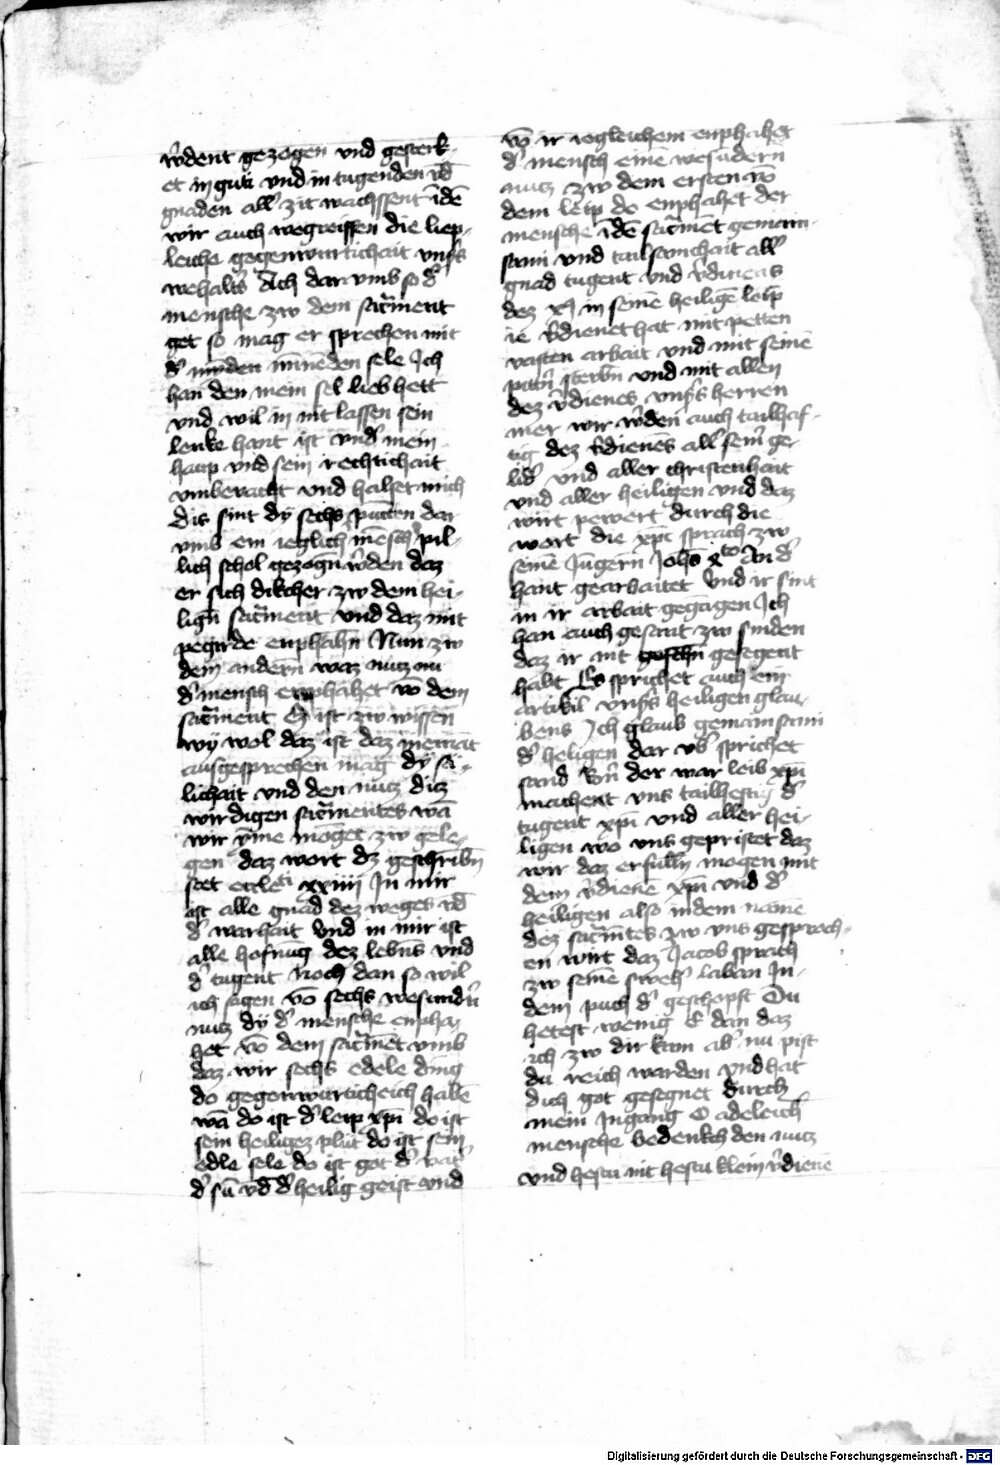 w̓dent gezogen vnd gesterk-
et in guti vnd in tugenden vn̄d
gnaden all zit wachssent īdē
wir auch wegreiffen die liep-
leiche gegenwurtichait vnsꝰs
wehaltꝰs Ach dar vmb so dꝰ
mensche zw dem sac̄ment
get so mag er sprechen mit
dꝰ mīnēden sele Ich
han den mein sel lieb hett
vnd wil in nit lassen sein
lenke hant ist vndꝰ mein
haup vnd sein rechtichait
vmbevacht vnd halset mich
dis sint dÿ sechs putten dar
vmb ein ieglich mēsch pil-
lich schol gezogn̄ wꝰden daz
er sich dikcher zw dem hei-
lign̄ sac̄ment vnd daz mit
pegirde enphahn̄ Nun zw
dem andern̄ waz nutz nu
dꝰ mensch enphahet vō dem
sac̄ment Ez ist zw wissen
wÿ wol daz ist daz niemāt
ausgesprechen mag dÿ sä-
lichait vnd den nutz ditz
wirdigen sac̄mentes wā
wir möget zw gele-
gen daz wort dz geschribn̄
stet eccleti xxiiij In mir
ist alle gnad dez weges vn̄d
dꝰ warhait vnd in mir ist
alle hofnūg dez lebns̄ vnd
dꝰ tugent Noch dan so wil
ich sagen vō sechs wesundꝰn
nutz dÿ dꝰ mensche enpha-
het vō dem sac̄mēt vmb
daz wir sechs edele ding
do gegenwurticheich habē
wā do ist dꝰ leip xp̄i do ist
sein heiligez plüt do ist sein
edle sele do ist got dꝰ vatꝰ
dꝰ sū vn̄d dꝰ heilig geist vnd
vō ir iegleichem enphahet
dꝰ mensch einē wesudern̄
nutz zw dem ersten vō
dem leip do enphahet der
mensche īdē sac̄mēt gemain-
sam vnd tailsamchait all
gnad tugent vnd vꝰdieneˢ
dez xp̄i in seinē heiligē leip
ie vꝰdienet hat mit petten
vasten arbait vnd mit seinē
pittn̄ sterbn̄ vnd mit allen
dez vꝰdienes vnsꝰs herren
mer wir wꝰdēn auch tailhaf-
tig dez vꝰdienēs all seinꝰ ge-
lidꝰ vnd aller christenhait
vnd aller heiligen vnd daz
wirt pewert durch die
wort die xp̄c sprach zw
seinē Jungern̄ Joh̄s 4to An dꝰ
hant gearbaitet vnd ir sint
in ir arbait gegāgen Ich
han euch gesant zw sniden
daz ir nit gesegent
habt Es sprichet auch ein
artikil vnsꝰs heiligen glau-
bens Ich glaub gemainsam
dꝰ heligen dar vbꝰ sprichet
sand der war leib xp̄i
machent vns tailheftig dꝰ
tugent xp̄i vnd aller hei-
ligen wo vns gepristet daz
wir daz erfulln̄ mogen mit
dem vꝰdiene xp̄i vnd dꝰ
heiligen also in dem namē
dez sac̄mtes zw vns gesproch-
en wirt daz Jacob sprach
zw seinē swehꝰ laban In-
dem puch dꝰ geschopft Du
hetest wenig E dan daz
ich zw dir kam abꝰ nu pist
du reich warden vnd hat
dich got gesegnet durch
mein Ingang O adeleich
mensche bedenkch den nutz
vnd hestu nit hestu klein vꝰdienē
Digitalisierung gefördert durch die Deutsche Forschungsgemeinschaft - DFG